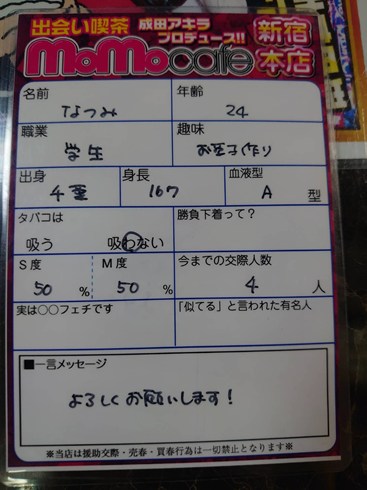 出会い喫茶 成田アキラ
プロデュース!!
MoMocafe 新宿本店
名前 年齢
なつみ 24
職業 趣味
学生 お菓子作り
出身 身長 血液型
千葉 167 A 型
タバコは 勝負下着って?
吸う 吸わない
S度 M度 今までの交際人数
50 % 50 % 4 人
実は○○フェチです 「似てる」と言われた有名人
■一言メッセージ
よろしくお願いします!
※当店は援助交際・売春・買春行為は一切禁止となります※